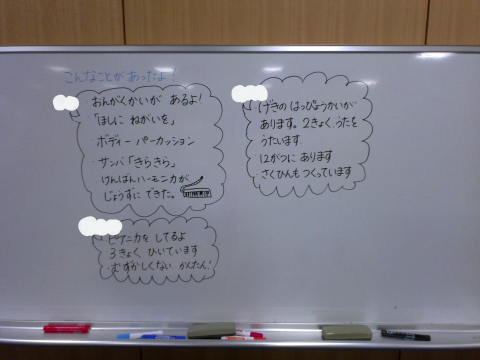 こんなことがあったよ!
おんがくかいが あるよ!
「ほしに ねがいを」
ボディー パーカッション
サンバ「きらきら」
けんばんハーモニカが
じょうずに できた。
ピアニカを してるよ
3きょく ひいています
むずかしくない かんたん!
げきの はっぴょうかいが
あります。2きょく うたを
うたいます
12がつに あります
さくひんも つくっています